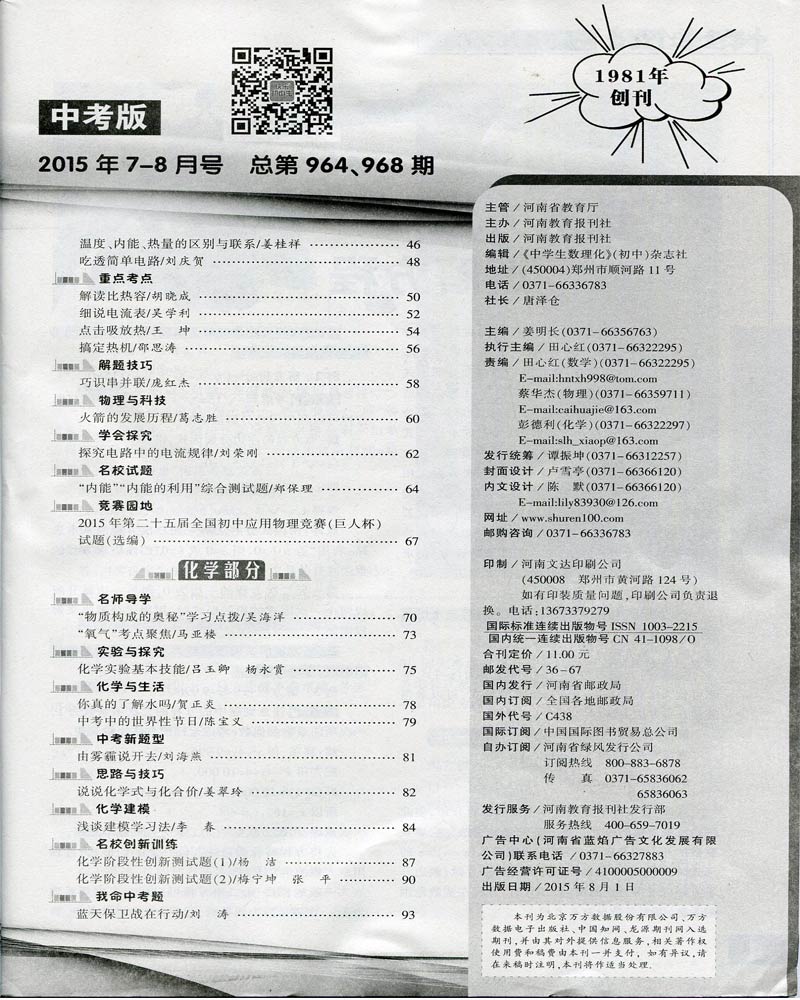 1981年
创刊
中考版
2015年7-8月号 总第964、968期
温度、内能、热量的区别与联系/姜桂祥 ……………… 46
吃透简单电路/刘庆贺 ……………… 48
重点考点
解读比热容/胡晓成 ……………… 50
细说电流表/吴学利 ……………… 52
点击吸放热/王 坤 ……………… 54
搞定热机/邵思涛 ……………… 56
解题技巧
巧识串并联/庞红杰 ……………… 58
物理与科技
火箭的发展历程/葛志胜 ……………… 60
学会探究
探究电路中的电流规律/刘荣刚 ……………… 62
名校试题
“内能”“内能的利用”综合测试题/郑保理 ……………… 64
竞赛园地
2015年第二十五届全国初中应用物理竞赛(巨人杯)
试题(选编) ……………… 67
化学部分
名师导学
“物质构成的奥秘”学习点拨/吴海洋 ……………… 70
“氧气”考点聚焦/马亚楼 ……………… 73
实验与探究
化学实验基本技能/吕玉卿 杨永赏 ……………… 75
化学与生活
你真的了解水吗/贺正炎 ……………… 78
中考中的世界性节日/陈宝义 ……………… 79
中考新题型
由雾霾说开去/刘海燕 ……………… 81
思路与技巧
说说化学式与化合价/姜翠玲 ……………… 82
化学建模
浅谈建模学习法/李 春 ……………… 84
名校创新训练
化学阶段性创新测试题(1)/杨 洁 ……………… 87
化学阶段性创新测试题(2)/梅宁坤 张 平 ……………… 90
我命中考题
蓝天保卫战在行动/刘 涛 ……………… 93
主管/河南省教育厅
主办/河南教育报刊社
出版/河南教育报刊社
编辑/《中学生数理化》(初中)杂志社
地址/(450004)郑州市顺河路11号
电话/0371-66336783
社长/唐泽仓
主编/姜明长(0371-66356763)
执行主编/田心红(0371-66322295)
责编/田心红(数学)(0371-66322295)
E-mail:hntxh998@tom.com
蔡华杰(物理)(0371-66359711)
E-mail:caihuajie@163.com
彭德利(化学)(0371-66322297)
E-mail:slh_xiaop@163.com
发行统筹/谭振坤(0371-66312257)
封面设计/卢雪亭(0371-66366120)
内文设计/陈 默(0371-66366120)
E-mail:lily83930@126.com
网址/www.shuren100.com
邮购咨询/0371-66336783
印制/河南文达印刷公司
(450008 郑州市黄河路124号)
如有印装质量问题,印刷公司负责退
换。电话:13673379279
国际标准连续出版物号 ISSN 1003-2215
国内统一连续出版物号 CN 41-1098/O
合刊定价/11.00元
邮发代号/36-67
国内发行/河南省邮政局
国内订阅/全国各地邮政局
国外代号/C438
国际订阅/中国国际图书贸易总公司
自办订阅/河南省绿风发行公司
订阅热线 800-883-6878
传 真 0371-65836062
65836063
发行服务/河南教育报刊社发行部
服务热线 400-659-7019
广告中心(河南省蓝焰广告文化发展有限
公司)联系电话/0371-66327883
广告经营许可证号/4100005000009
出版日期/2015年8月1日
本刊为北京万方数据股份有限公司、万方
数据电子出版社、中国知网、龙源期刊网入选
期刊,并由其对外提供信息服务,相关著作权
使用费和稿费由本刊一并支付。如有异议,请
在来稿时注明,本刊将作适当处理。